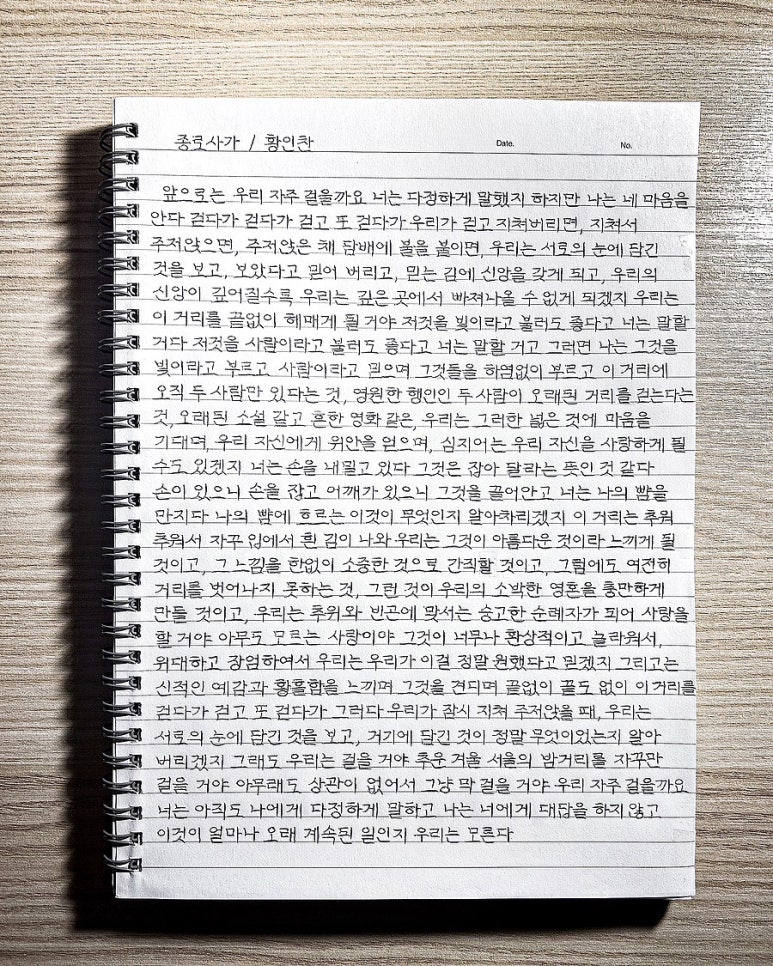 종로사가 / 황인찬
Date.
No.
앞으로는 우리 자주 걸을까요 너는 다정하게 말했지 하지만 나는 네 마음을
안다 걷다가 걷다가 걷고 또 걷다가 우리가 걷고 지쳐버리면, 지쳐서
주저앉으면, 주저앉은 채 담배에 불을 붙이면, 우리는 서로의 눈에 담긴
것을 보고, 보았다고 믿어 버리고, 믿는 김에 신앙을 갖게 되고, 우리의
신앙이 깊어질수록 우리는 깊은 곳에서 빠져나올 수 없게 되겠지 우리는
이 거리를 끝없이 헤매게 될 거야 저것을 빛이라고 불러도 좋다고 너는 말할
거다 저것을 사람이라고 불러도 좋다고 너는 말할 거고 그러면 나는 그것을
빛이라고 부르고 사람이라고 믿으며 그것들을 하염없이 부르고 이 거리에
오직 두 사람만 있다는 것, 영원한 행인인 두 사람이 오래된 거리를 걷는다는
것, 오래된 소설 같고 흔한 영화 같은, 우리는 그러한 넓은 것에 마음을
기대며, 우리 자신에게 위안을 얻으며, 심지어는 우리 자신을 사랑하게 될
수도 있겠지 너는 손을 내밀고 있다 그것은 잡아 달라는 뜻인 것 같다
손이 있으니 손을 잡고 어깨가 있으니 그것을 끌어안고 너는 나의 뺨을
만지다 나의 뺨에 흐르는 이것이 무엇인지 알아차리겠지 이 거리는 추워
추워서 자꾸 입에서 흰 김이 나와 우리는 그것이 아름다운 것이라 느끼게 될
것이고, 그 느낌을 한없이 소중한 것으로 간직할 것이고, 그럼에도 여전히
거리를 벗어나지 못하는 것, 그런 것이 우리의 소박한 영혼을 충만하게
만들 것이고, 우리는 추위와 빈곤에 맞서는 숭고한 순례자가 되어 사랑을
할 거야 아무도 모르는 사랑이야 그것이 너무나 환상적이고 놀라워서,
위대하고 장엄하여서 우리는 우리가 이걸 정말 원했다고 믿겠지 그리고는
신적인 예감과 황홀함을 느끼며 그것을 견디며 끝없이 끝도 없이 이 거리를
걷다가 걷고 또 걷다가 그러다 우리가 잠시 지쳐 주저앉을 때, 우리는
서로의 눈에 담긴 것을 보고, 거기에 담긴 것이 정말 무엇이었는지 알아
버리겠지 그래도 우리는 걸을 거야 추운 겨울 서울의 밤거리를 자꾸만
걸을 거야 아무래도 상관이 없어서 그냥 막 걸을 거야 우리 자주 걸을까요
너는 아직도 나에게 다정하게 말하고 나는 너에게 대답을 하지 않고
이것이 얼마나 오래 계속된 일인지 우리는 모른다